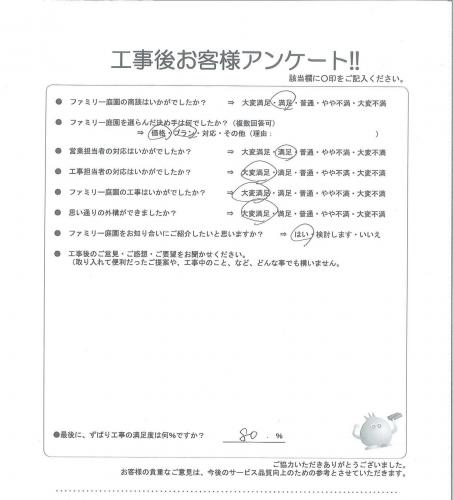 工事後お客様アンケート!!
該当欄に〇印をご記入ください。
● ファミリー庭園の商談はいかがでしたか? ⇒ 大変満足・満足・普通・やや不満・大変不満
● ファミリー庭園を選らんだ決め手は何でしたか?(複数回答可)
⇒ 価格・プラン・対応・その他(理由: )
● 営業担当者の対応はいかがでしたか? ⇒ 大変満足・満足・普通・やや不満・大変不満
● 工事担当者の対応はいかがでしたか? ⇒ 大変満足・満足・普通・やや不満・大変不満
● ファミリー庭園の工事はいかがでしたか? ⇒ 大変満足・満足・普通・やや不満・大変不満
● 思い通りの外構ができましたか? ⇒ 大変満足・満足・普通・やや不満・大変不満
● ファミリー庭園をお知り合いにご紹介したいと思いますか? ⇒ はい・検討します・いいえ
● 工事後のご意見・ご感想・ご要望をお聞かせください。
(取り入れて便利だったご提案や、工事中のこと、など、どんな事でも構いません。
●最後に、ずばり工事の満足度は何%ですか? 80.%
ご協力いただきありがとうございました。
お客様の貴重なご意見は、今後のサービス品質向上のための参考とさせていただきます。